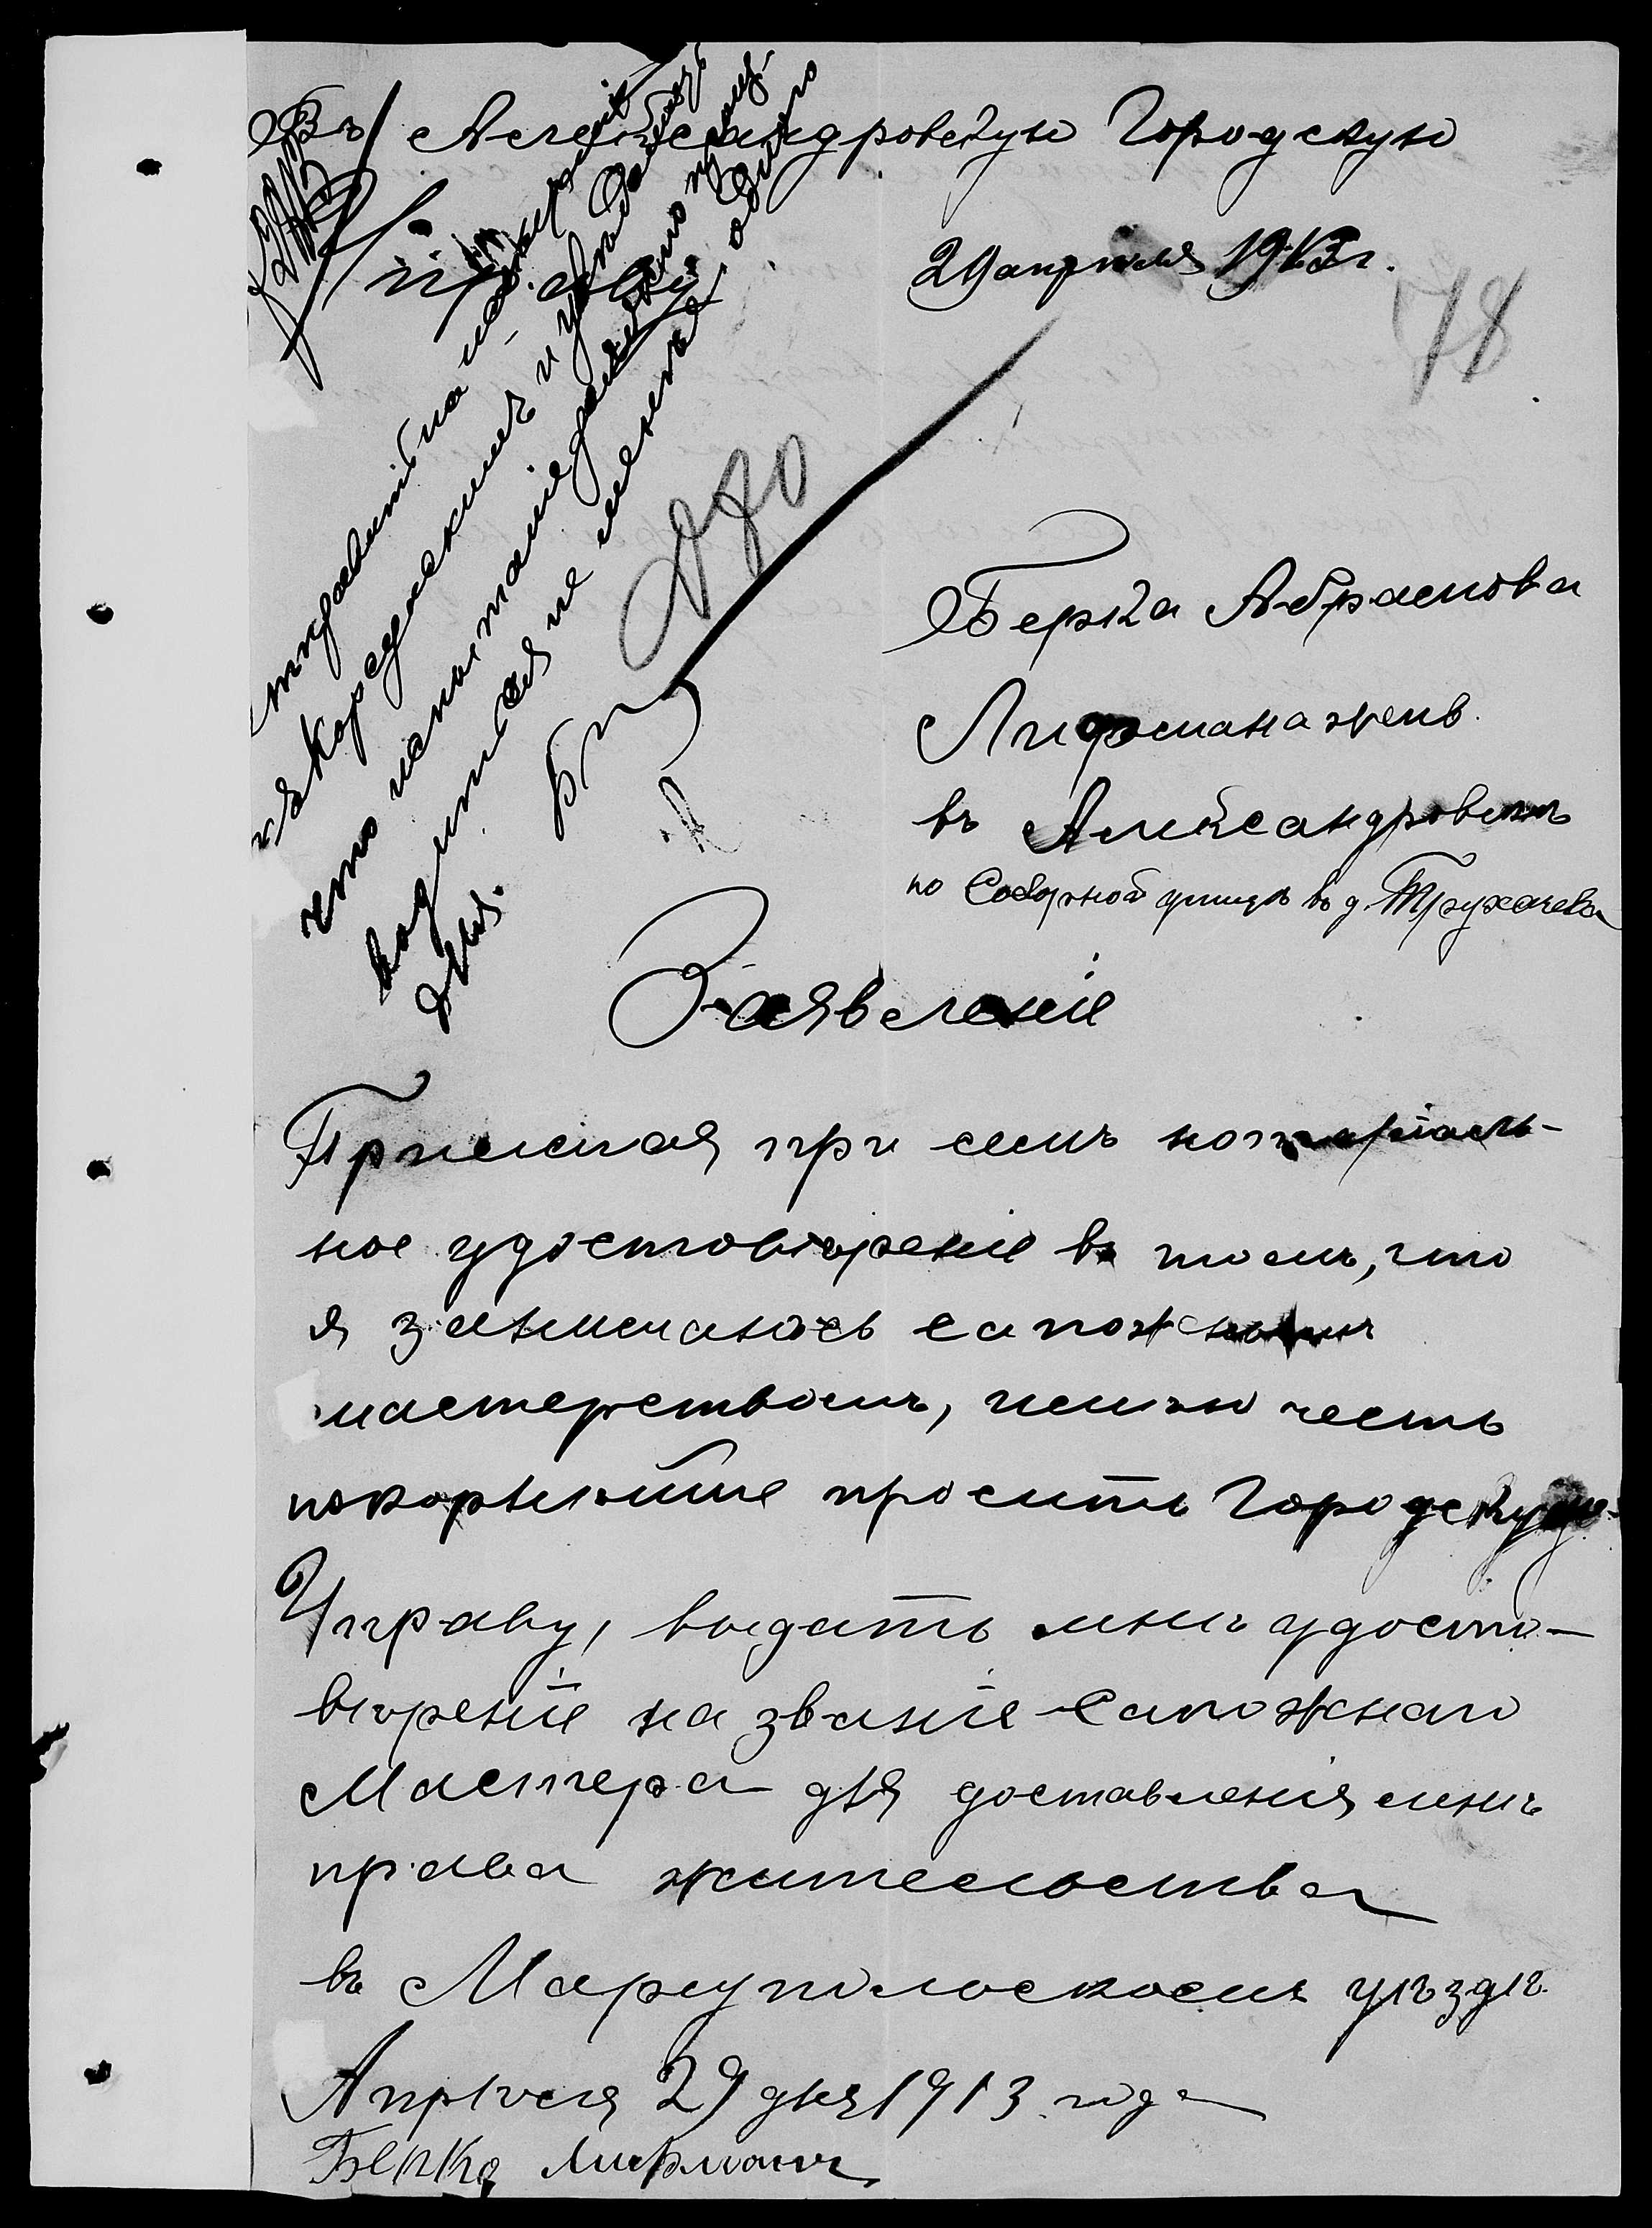 Въ Александровскую Городскую
Управу
29 апрѣля 1913 г.
78
Берка Абрамова
Лифмана жив.
въ Александровскѣ
по Соборной улицѣ въ д. Трухачева
270
Заявленіе
Прилагая при семъ нотаріаль-
ное удостовѣреніе въ томъ, что
я занимаюсь сапожнымъ
мастерствомъ, имѣю честь
покорнѣйше просить Городскую
Управу, выдать мнѣ удосто-
вѣреніе на званіе Сапожнаго
Мастера для доставленія мнѣ
права жительства
въ Маріупольскомъ уѣздѣ.
Апрѣля 29 дня 1913 года
Берко Лифманъ
что испытаніе
водится не менѣе одного
дня.